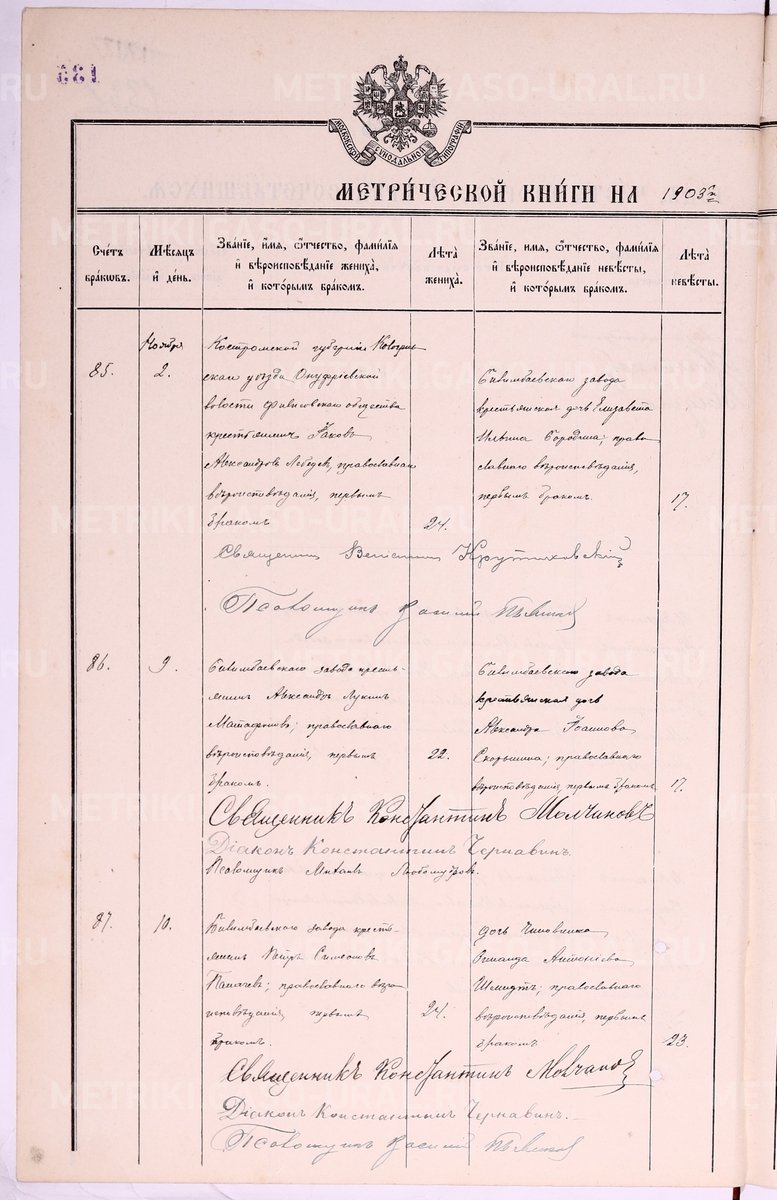 681
МОСКОВСКОЙ СѴНОДАЛЬНОЙ ТИПОГРАФІИ
МЕТРИ́ЧЕСКОЙ КНИ́ГИ НА 1903
Сче́тъ бра́кωвъ.
Мѣсяцъ и де́нь.
Зва́нїе, и́мя, ѻ́тчество, фамилїя и вѣроисповѣданїе жениха̀, и кото́рымъ бра́комъ.
Лѣта̀ жениха̀.
Зва́нїе, имя, ѻ́тчество, фамилїя и вѣроисповѣданїе невѣсты, и кото́рымъ бра́комъ.
Лѣта̀ невѣсты.
Ноября
85.
2.
Костромской губерніи Кологрив-
скаго уѣзда Онуфріевской
волости общества
крестьянинъ Іаковъ
Александровъ Лебедев, православнаго
вѣроисповѣданія, первымъ
бракомъ
24.
Билимбаевскаго завода
крестьянская дочь Елизавета
Ильина Бородина; право-
славнаго вѣроисповѣданія,
первымъ бракомъ.
17.
Священникъ Веніаминъ Крутиховскій
Псаломщикъ Василій
86.
9.
Билимбаевскаго завода кресть-
янинъ Александръ Лукинъ
Матафоновъ; православнаго
вѣроисповѣданія, первымъ
бракомъ.
22.
Билимбаевскаго завода
крестьянская дочь
Александра Іоаннова
Скорынина; православнаго
вѣроисповѣданія, первымъ бракомъ
17.
Священникъ Константинъ Молчановъ
Діаконъ Константинъ Чернавинъ.
Псаломщикъ Михаилъ Любомудровъ.
87.
10.
Билимбаевскаго завода кресть-
янинъ Петръ Симеоновъ
православнаго вѣро-
исповѣданія, первымъ
бракомъ.
24.
дочь чиновника
Антоніева
Шмидтъ; православнаго
вѣроисповѣданія, первымъ
бракомъ
23.
Священникъ Константинъ Молчановъ
Діаконъ Константинъ Чернавинъ.
Псаломщикъ Василій
METRIKI.GASO-URAL.RU